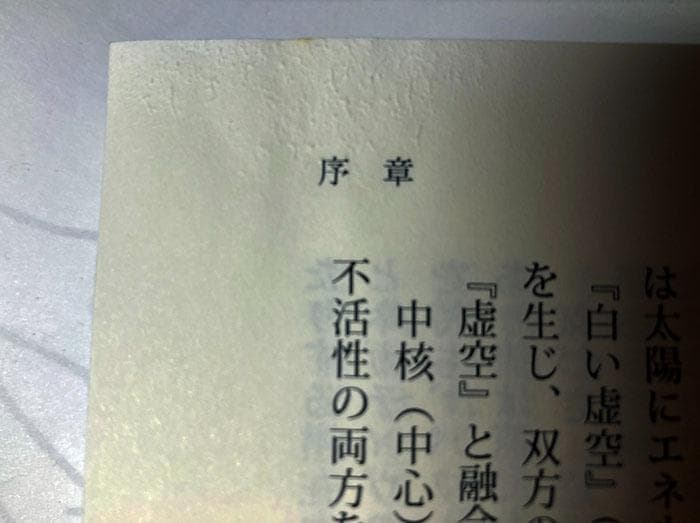 序章
は太陽にエネ
『白い虚空』（
を生じ、双方の
『虚空』と融合
中核（中心）
不活性の両方を